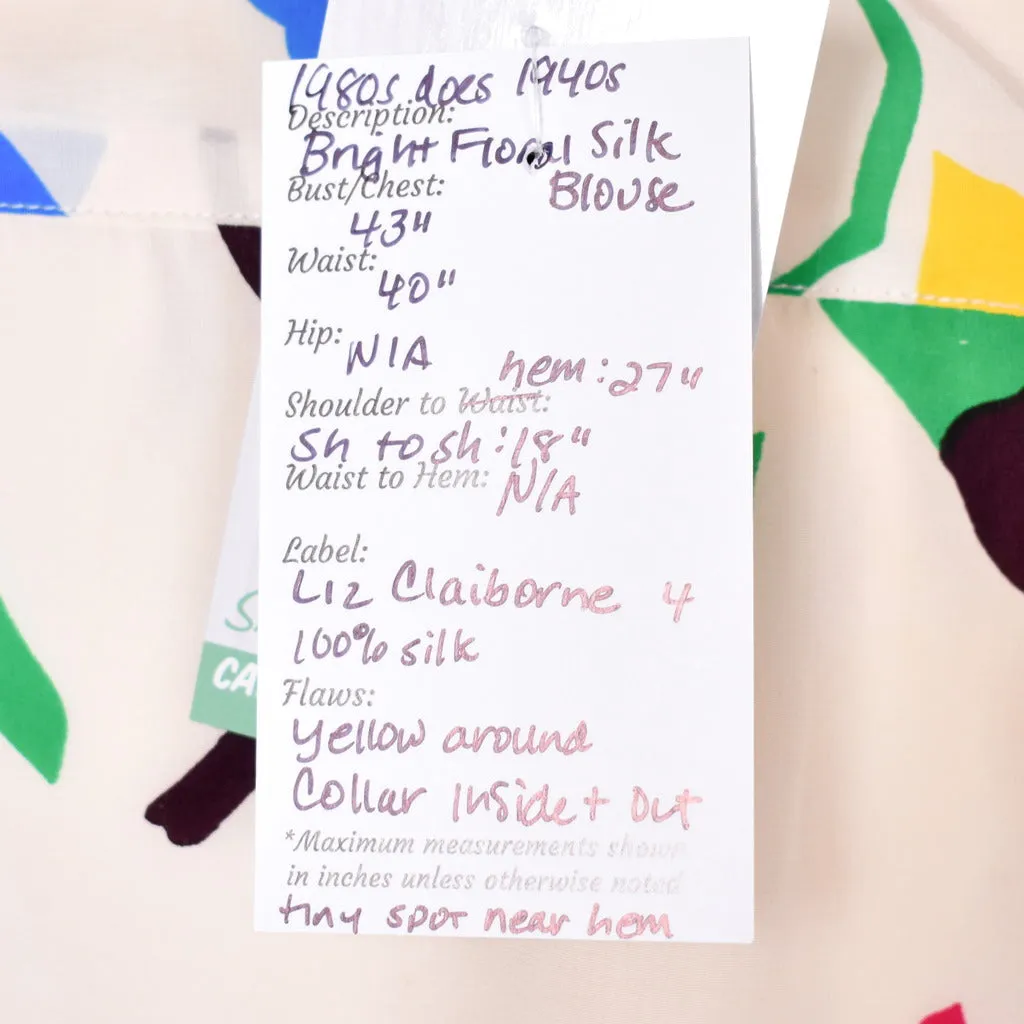 1980s does 1940s
Description:
Bright Floral Silk
Blouse
Bust/Chest:
43"
Waist:
40"
Hip:
N/A
hem: 27"
Shoulder to Waist:
Sh to sh: 18"
Waist to Hem:
N/A
Label:
Liz Claiborne 4
100% silk
Flaws:
Yellow around
Collar Inside + Out
*Maximum measurements shown
in inches unless otherwise noted
tiny spot near hem